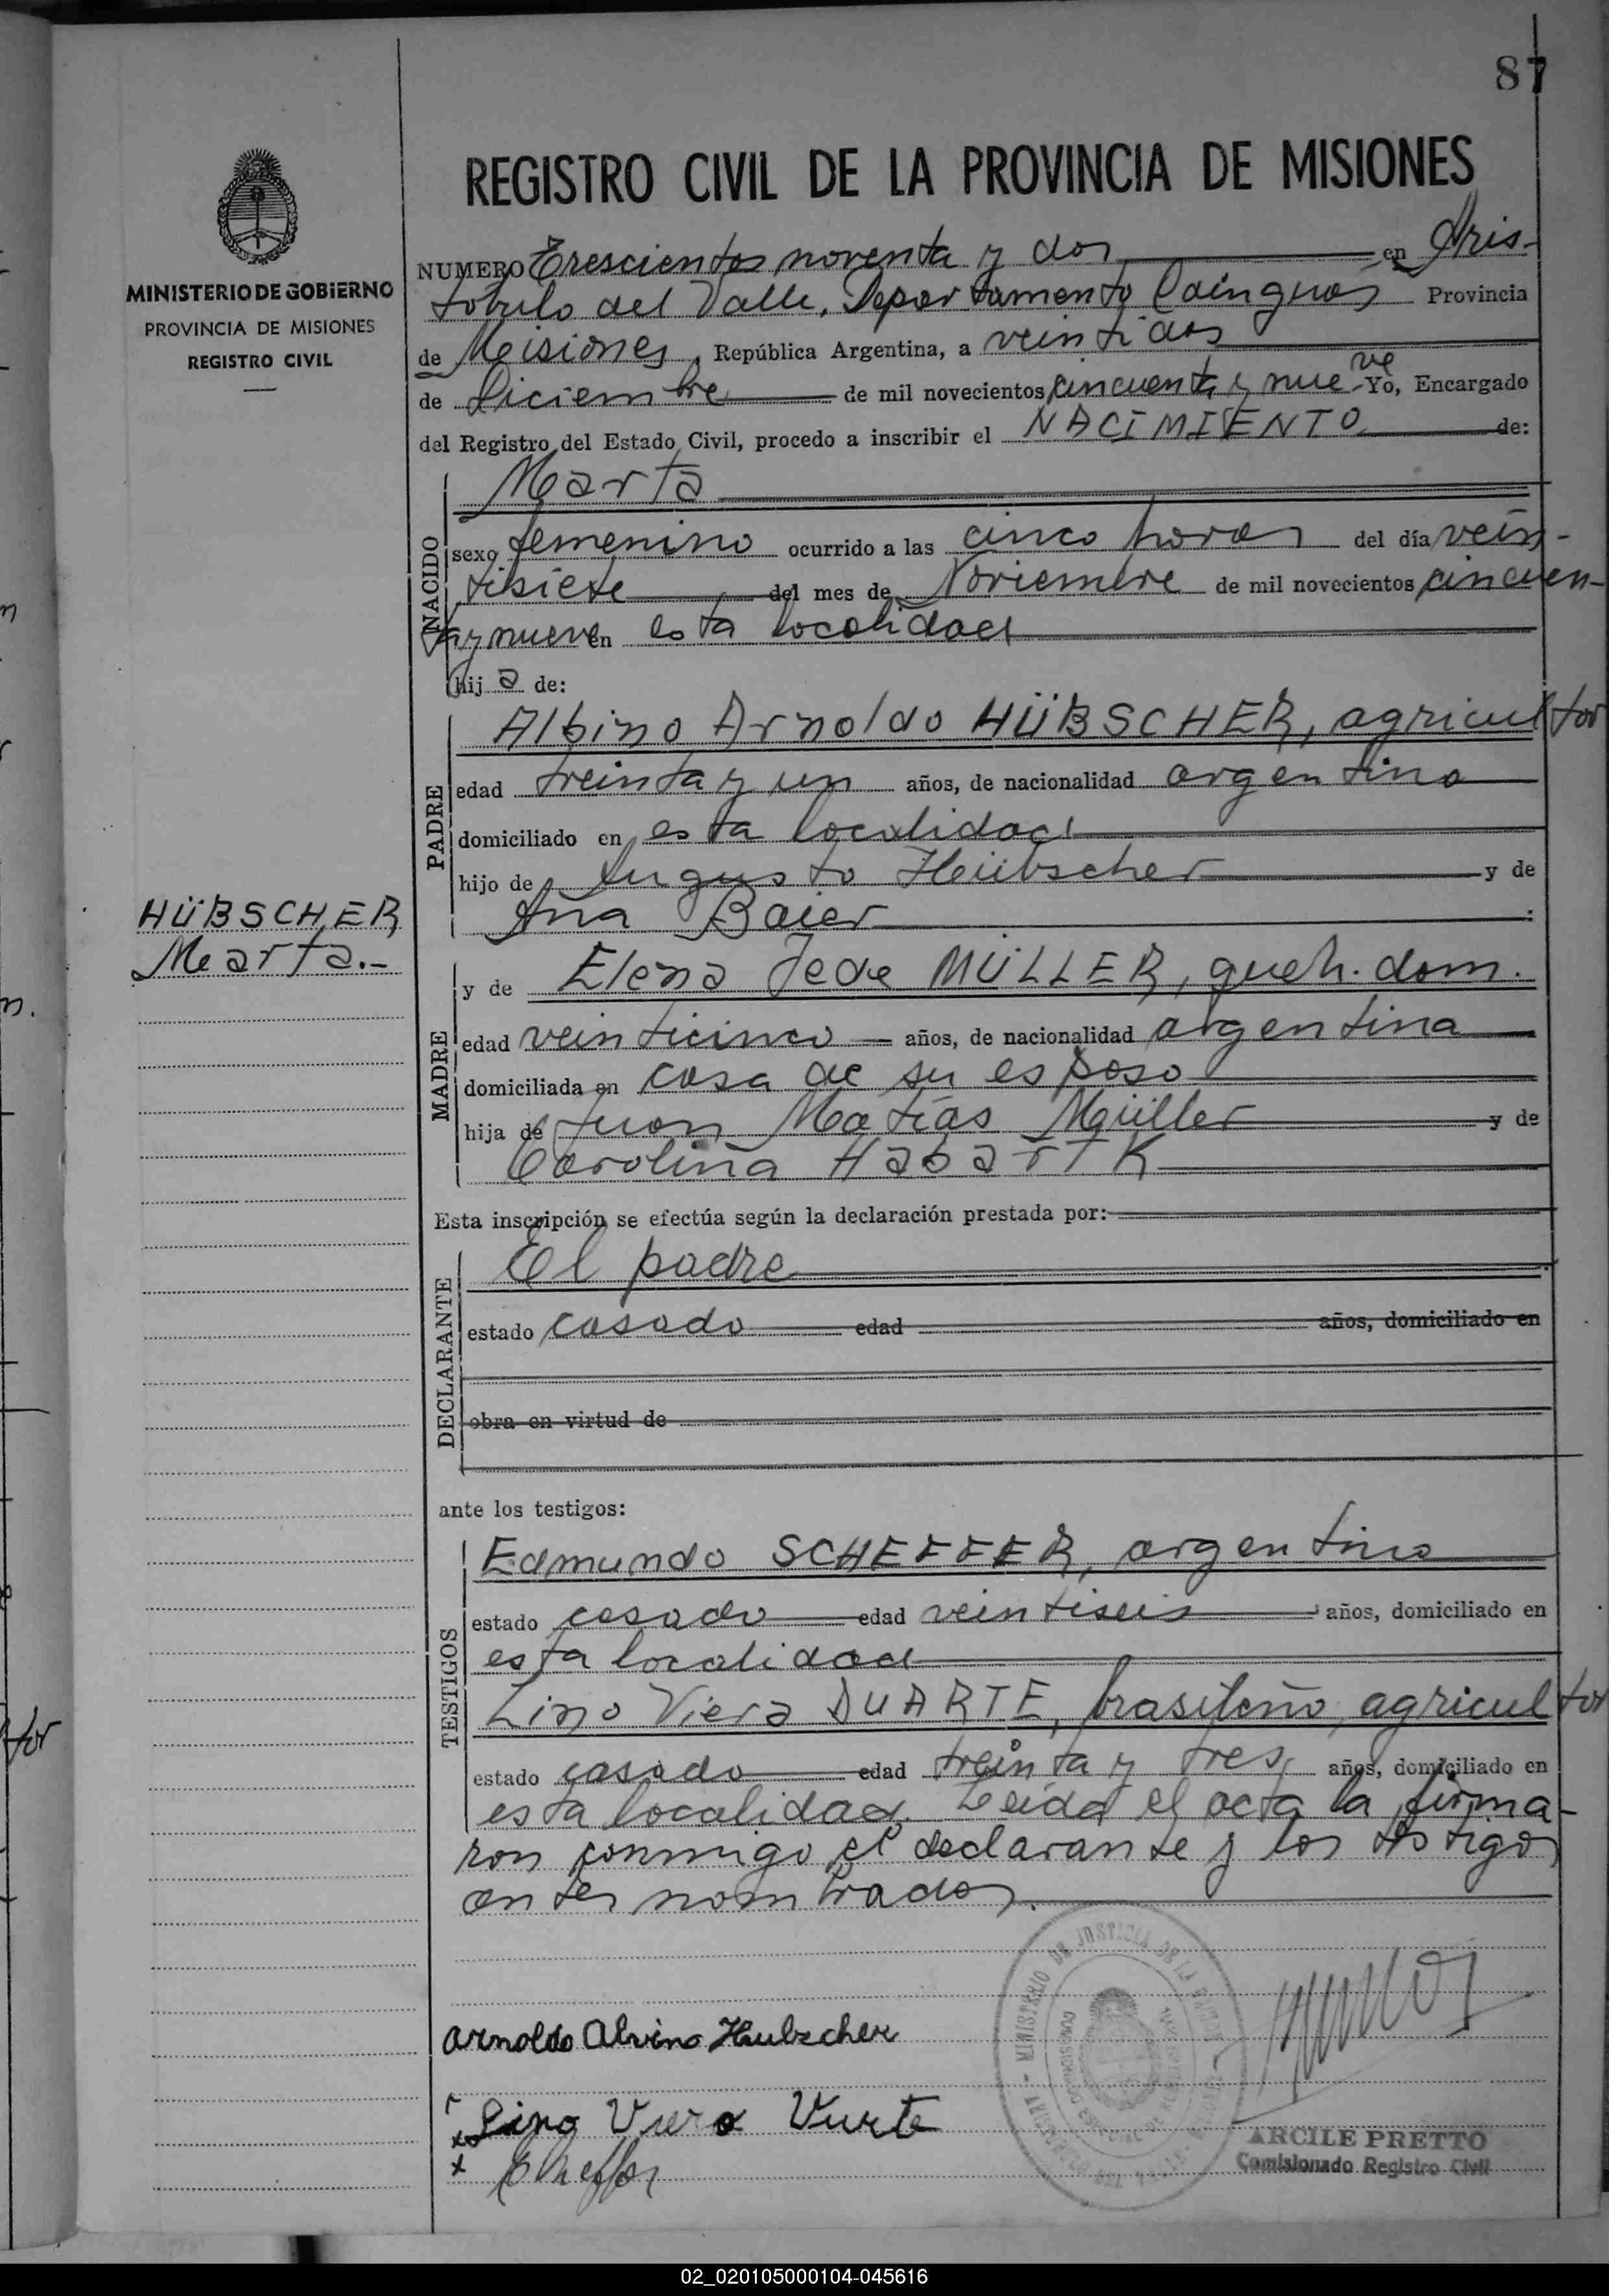 87
MINISTERIO DE GOBIERNO
PROVINCIA DE MISIONES
REGISTRO CIVIL
REGISTRO CIVIL DE LA PROVINCIA DE MISIONES
NUMERO Trescientos noventa y dos en Aris-
tóbulo del Valle, Departamento Cainguas Provincia
de Misiones, República Argentina, a veintidos
de Diciembre de mil novecientos cincuenta y nueve Yo, Encargado
del Registro del Estado Civil, procedo a inscribir el NACIMIENTO de:
NACIDO
Marta
sexo femenino ocurrido a las cinco horas del día vein-
tisiete del mes de Noviembre de mil novecientos cincuen-
ta y nueve en esta localidad
hij a de:
PADRE
Albino Arnoldo HÜBSCHER, agricultor
edad treinta y un años, de nacionalidad argentina
domiciliado en esta localidad
hijo de Augusto Heübscher y de
Ana Baier :
HÜBSCHER
Marta.-
MADRE
y de Elena Jede MÜLLER, queh. dom.
edad veinticinco años, de nacionalidad argentina
domiciliada en casa de su esposo
hija de Juan Matías Müller y de
Carolina Habartk
Esta inscripción se efectúa según la declaración prestada por:
DECLARANTE
El padre
estado casado edad años, domiciliado en
obra en virtud de
ante los testigos:
TESTIGOS
Edmundo SCHEFFER, argentino
estado casado edad veintiseis años, domiciliado en
esta localidad
Lino Viera DUARTE, brasileño, agricultor
estado casado edad treinta y tres, años, domiciliado en
esta localidad. Leída el acta la firma-
ron conmigo el declarante y los testigos
antes nombrados.
MINISTERIO DE JUSTICIA DE LA
Arnoldo Alvino Hubscher
x Lino Viera Durte
x
ARCILE PRETTO
Comisionado Registro Civil
02_020105000104-045616